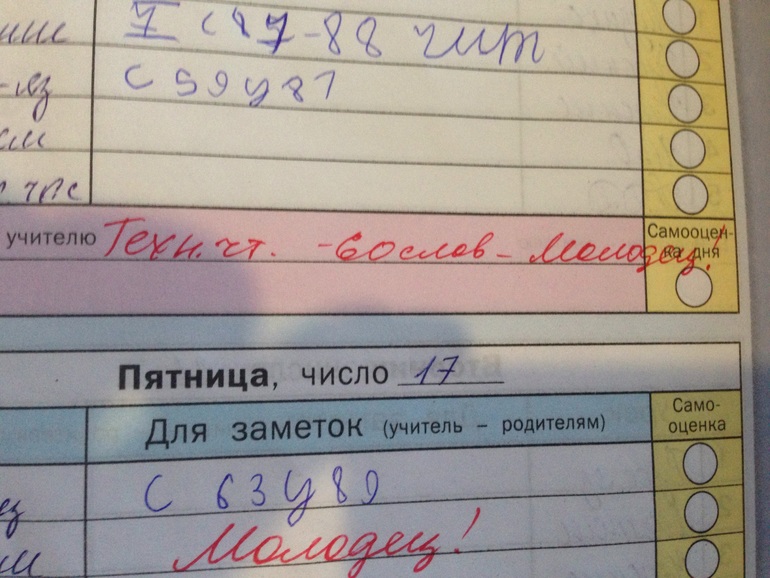 I с 87-88 чит
-яз с 59 у 87
учителю Техн. чт. - 60 слов - Молодец!
Самооцен-
ка дня
Пятница, число 17
Для заметок (учитель – родителям)
Само-
оценка
С 63 У 89
Молодец!